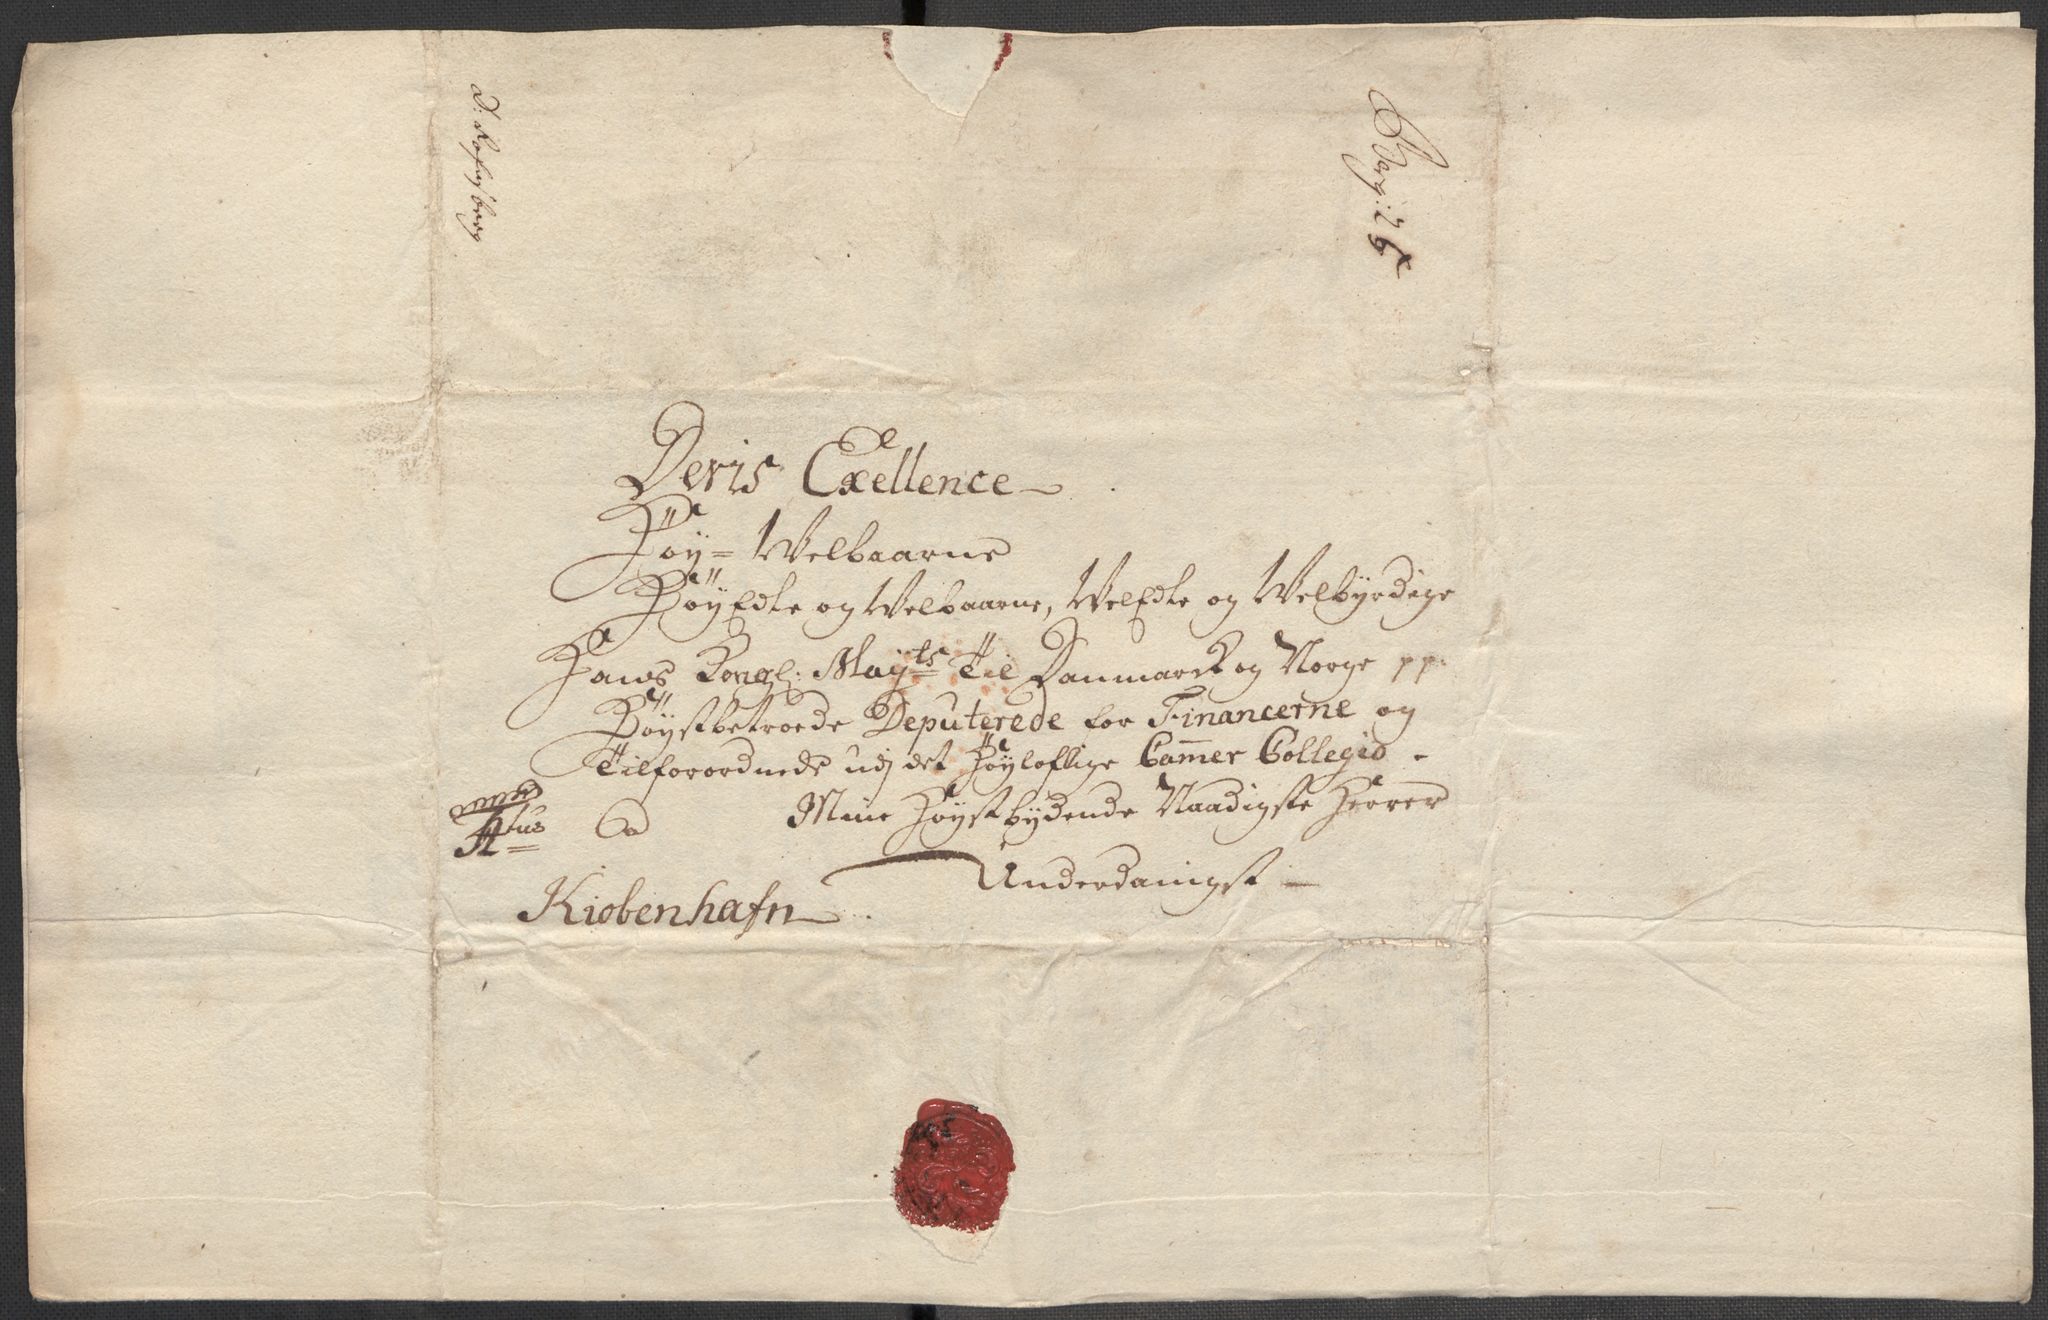 Deris Exellence
Høy= Welbaarne
HøyEdle og Welbaarne, WelEdle og Welbyrdige
Hans Kongl: Mayts Til Danmarck og Norge pp:
Høystbetroede Deputerede for Financerne og
Tilforordnede udj det Høyloflige Cam̄er Collegio -
Mine Høystbydende Naadigste Herrer
Underdanigst
a
Kiobenhafn